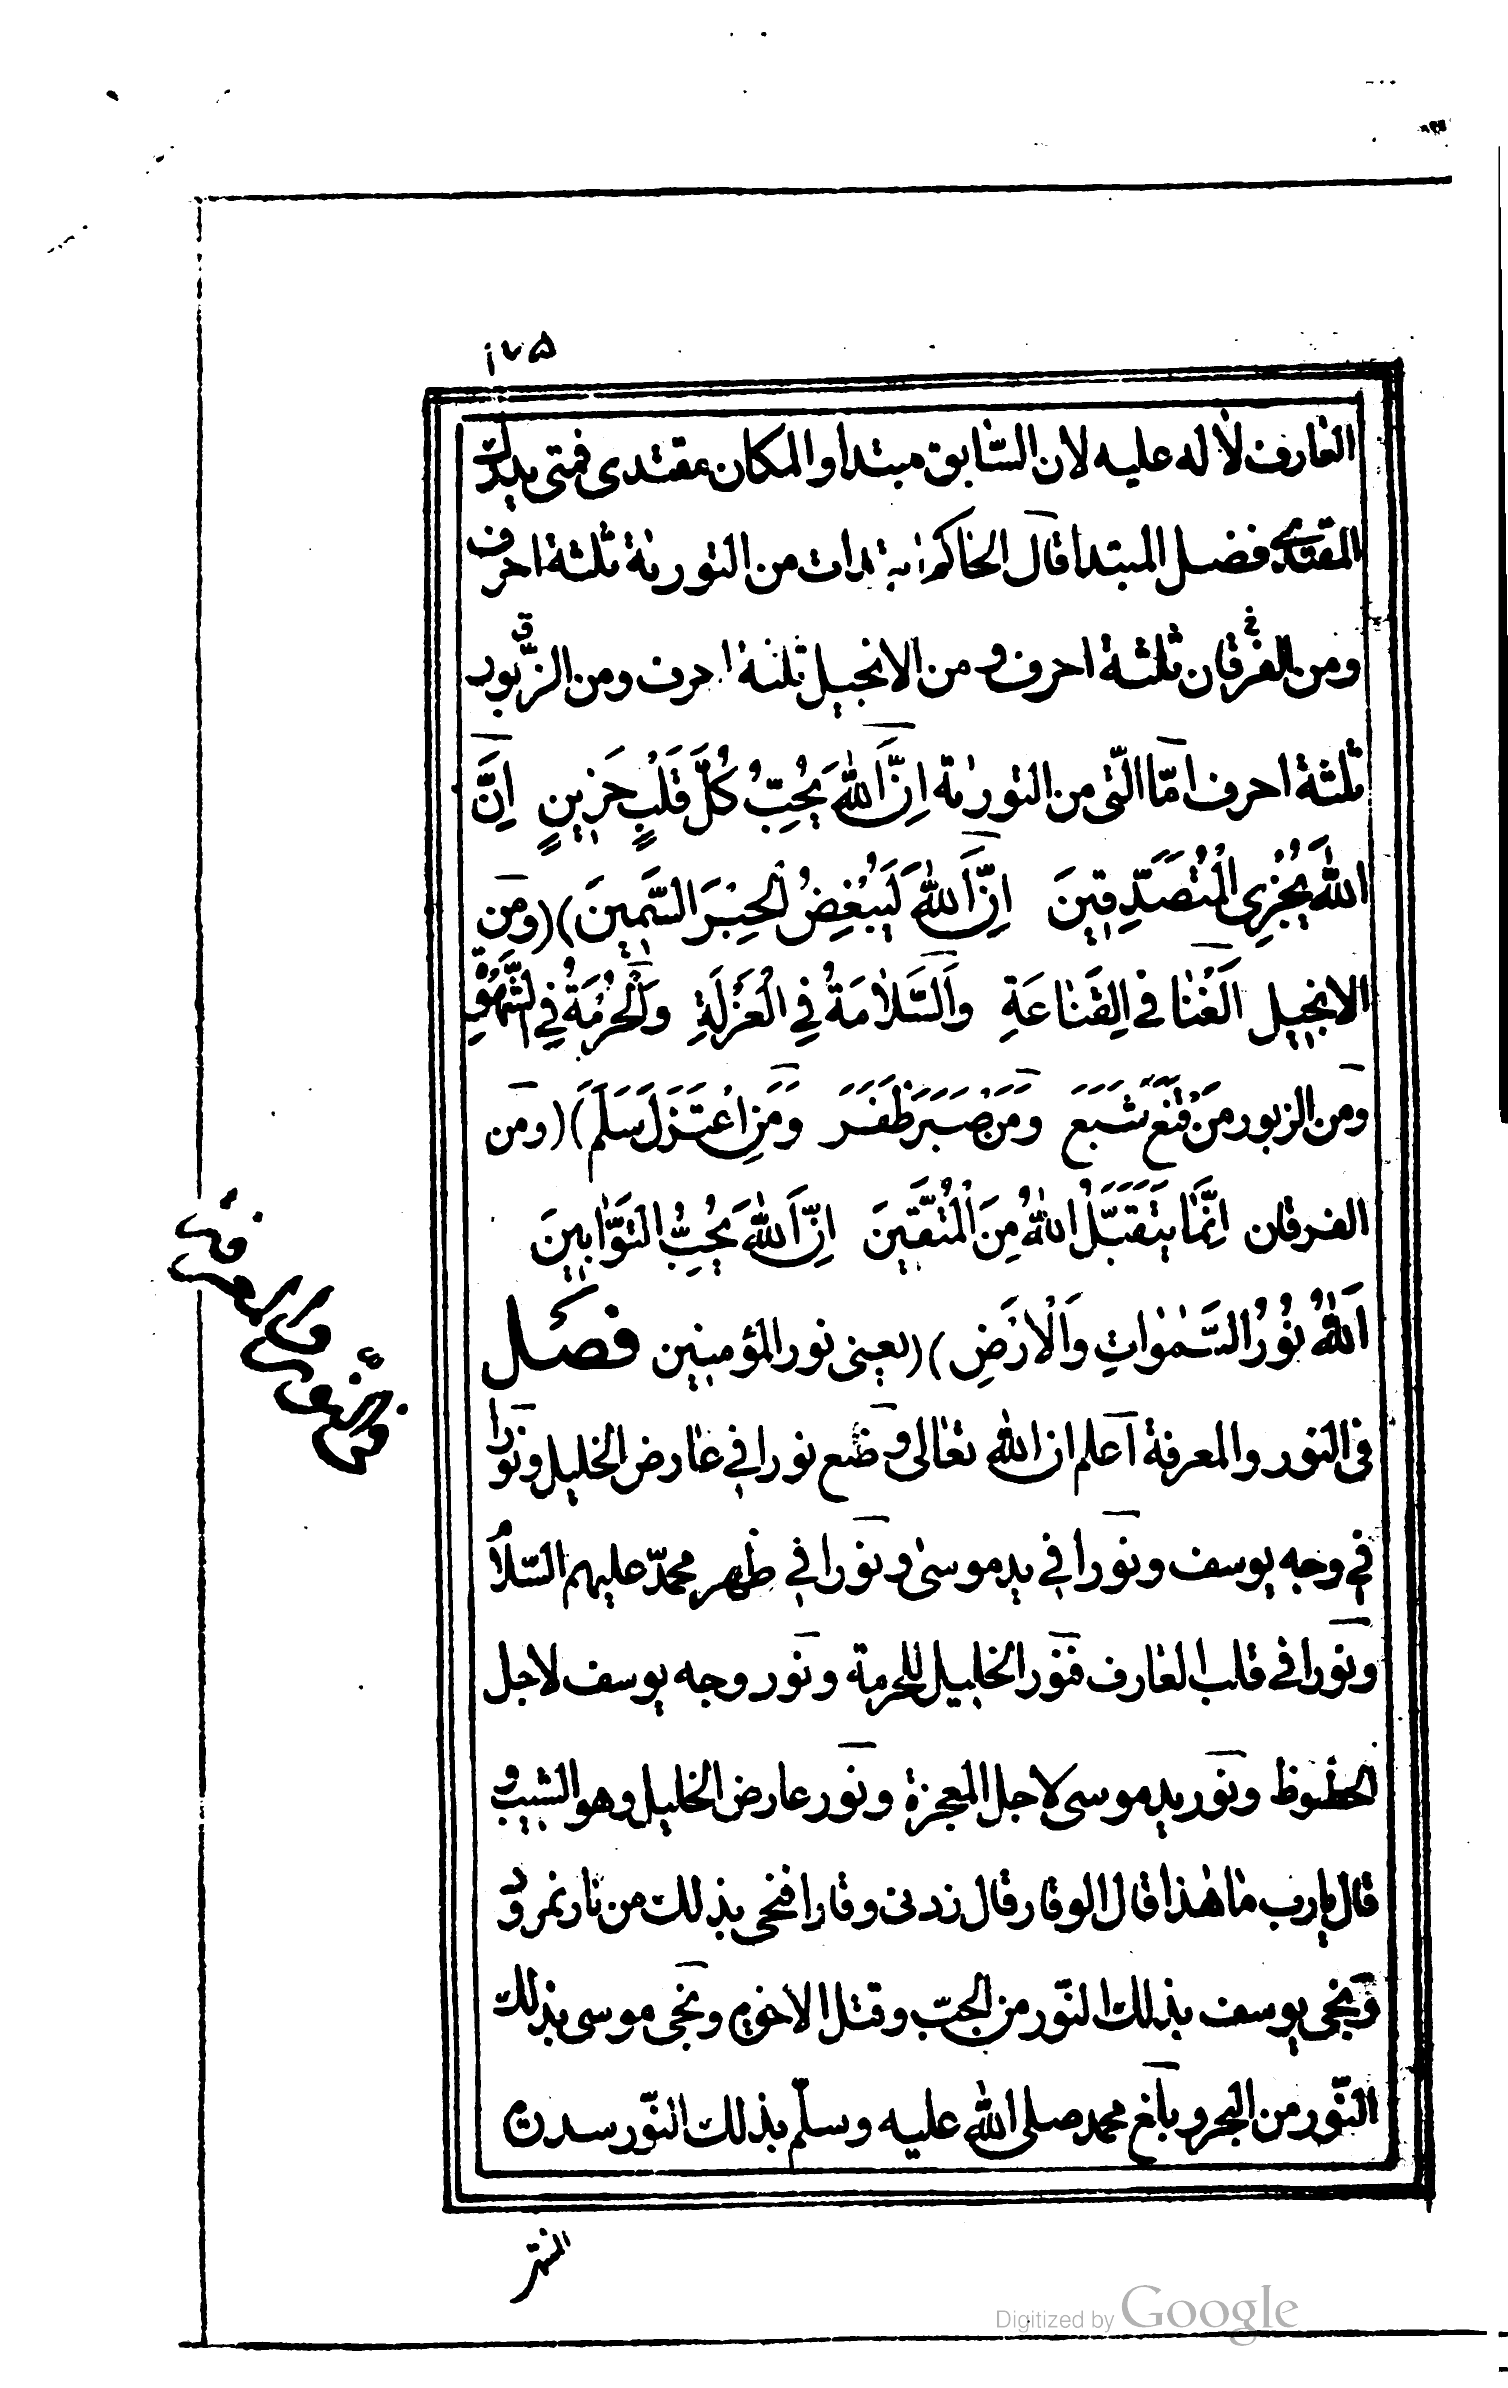 ١٧٥
العارف لا له عليه لان السّابق مبتدا والمكان مقتدى فمتى يدرك
المقتدى فضل المبتدا قال الحاكم من التورية ثلثة احرف
ومن الفرقان ثلثة احرف و من الانجيل ثلثة احرف ومن الزّبور
ثلثة احرف امّا الّتى من التورية اِنَّ اَللهَ يُحِبُّ كُلَّ قَلْبٍ حَزِينٍ اِنَّ
اللهَ يَجْزِى الْمُتَصَدِّقِينَ اِنَّ اَللهَ لَيُبْغِضُ الْحِبْرَ السَّمِينَ)(ومن
الانجيل اَلْغِنَا فى القَنَاعَةِ وَالسَّلَامَةُ فِي الْعُزْلَةِ وَالْحُرْمَةُ فِي الشَّهْوَةِ
ومن الزبور مَنْ قَنَعَ شَبَعَ وَمَنْ صَبَرَ ظَفَرَ وَمَنِ اعْتَزَلَ سَلَمَ)(ومن
الفرقان اِنَّمَا يَتَقَبَّلُ اللهُ مِنَ الْمُتَّقِينَ اِنَّ اَللهَ يُحِبُّ التَوَّابِينَ
اَللهُ نُوْرُ السَّمٰوَاتِ وَالْاَرْضِ)(يعنى نور المؤمنين فصل
فى النور والمعرفة اعلم ان الله تعالى وضع نورا في عارض الخليل ونورا
في وجه يوسف ونورا في يد موسى ونورا في ظهر محمّد عليهم السّلا
ونورا في قلب العارف فنور الخليل للحرمة ونور وجه يوسف لاجل
الحظوظ ونور يد موسى لاجل المعجزة ونور عارض الخليل وهو الشيب و
قال يارب ما هذا قال الوقار قال زدنى وقارا فنجى بذلك من نار نمرود
ونجى يوسف بذلك النّور من الجبّ وقتل الاخوة ونجى موسى بذلك
النّور من البحر وبلغ محمد صلى الله عليه وسلّم بذلك النّور سدرة
المنتهى
Digitized by Google